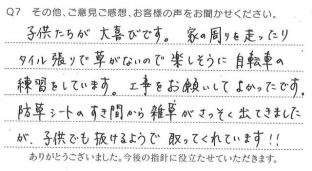 Q7 その他、ご意見ご感想、お客様の声をお聞かせください。
子供たちが大喜びです。家の周りを走ったり
タイル張りで草がないので楽しそうに自転車の
練習をしています。工事をお願いしてよかったです。
防草シートのすき間から雑草がさっそく出てきました
が、子供でも抜けるようで取ってくれています!!
ありがとうございました。今後の指針に役立たせていただきます。